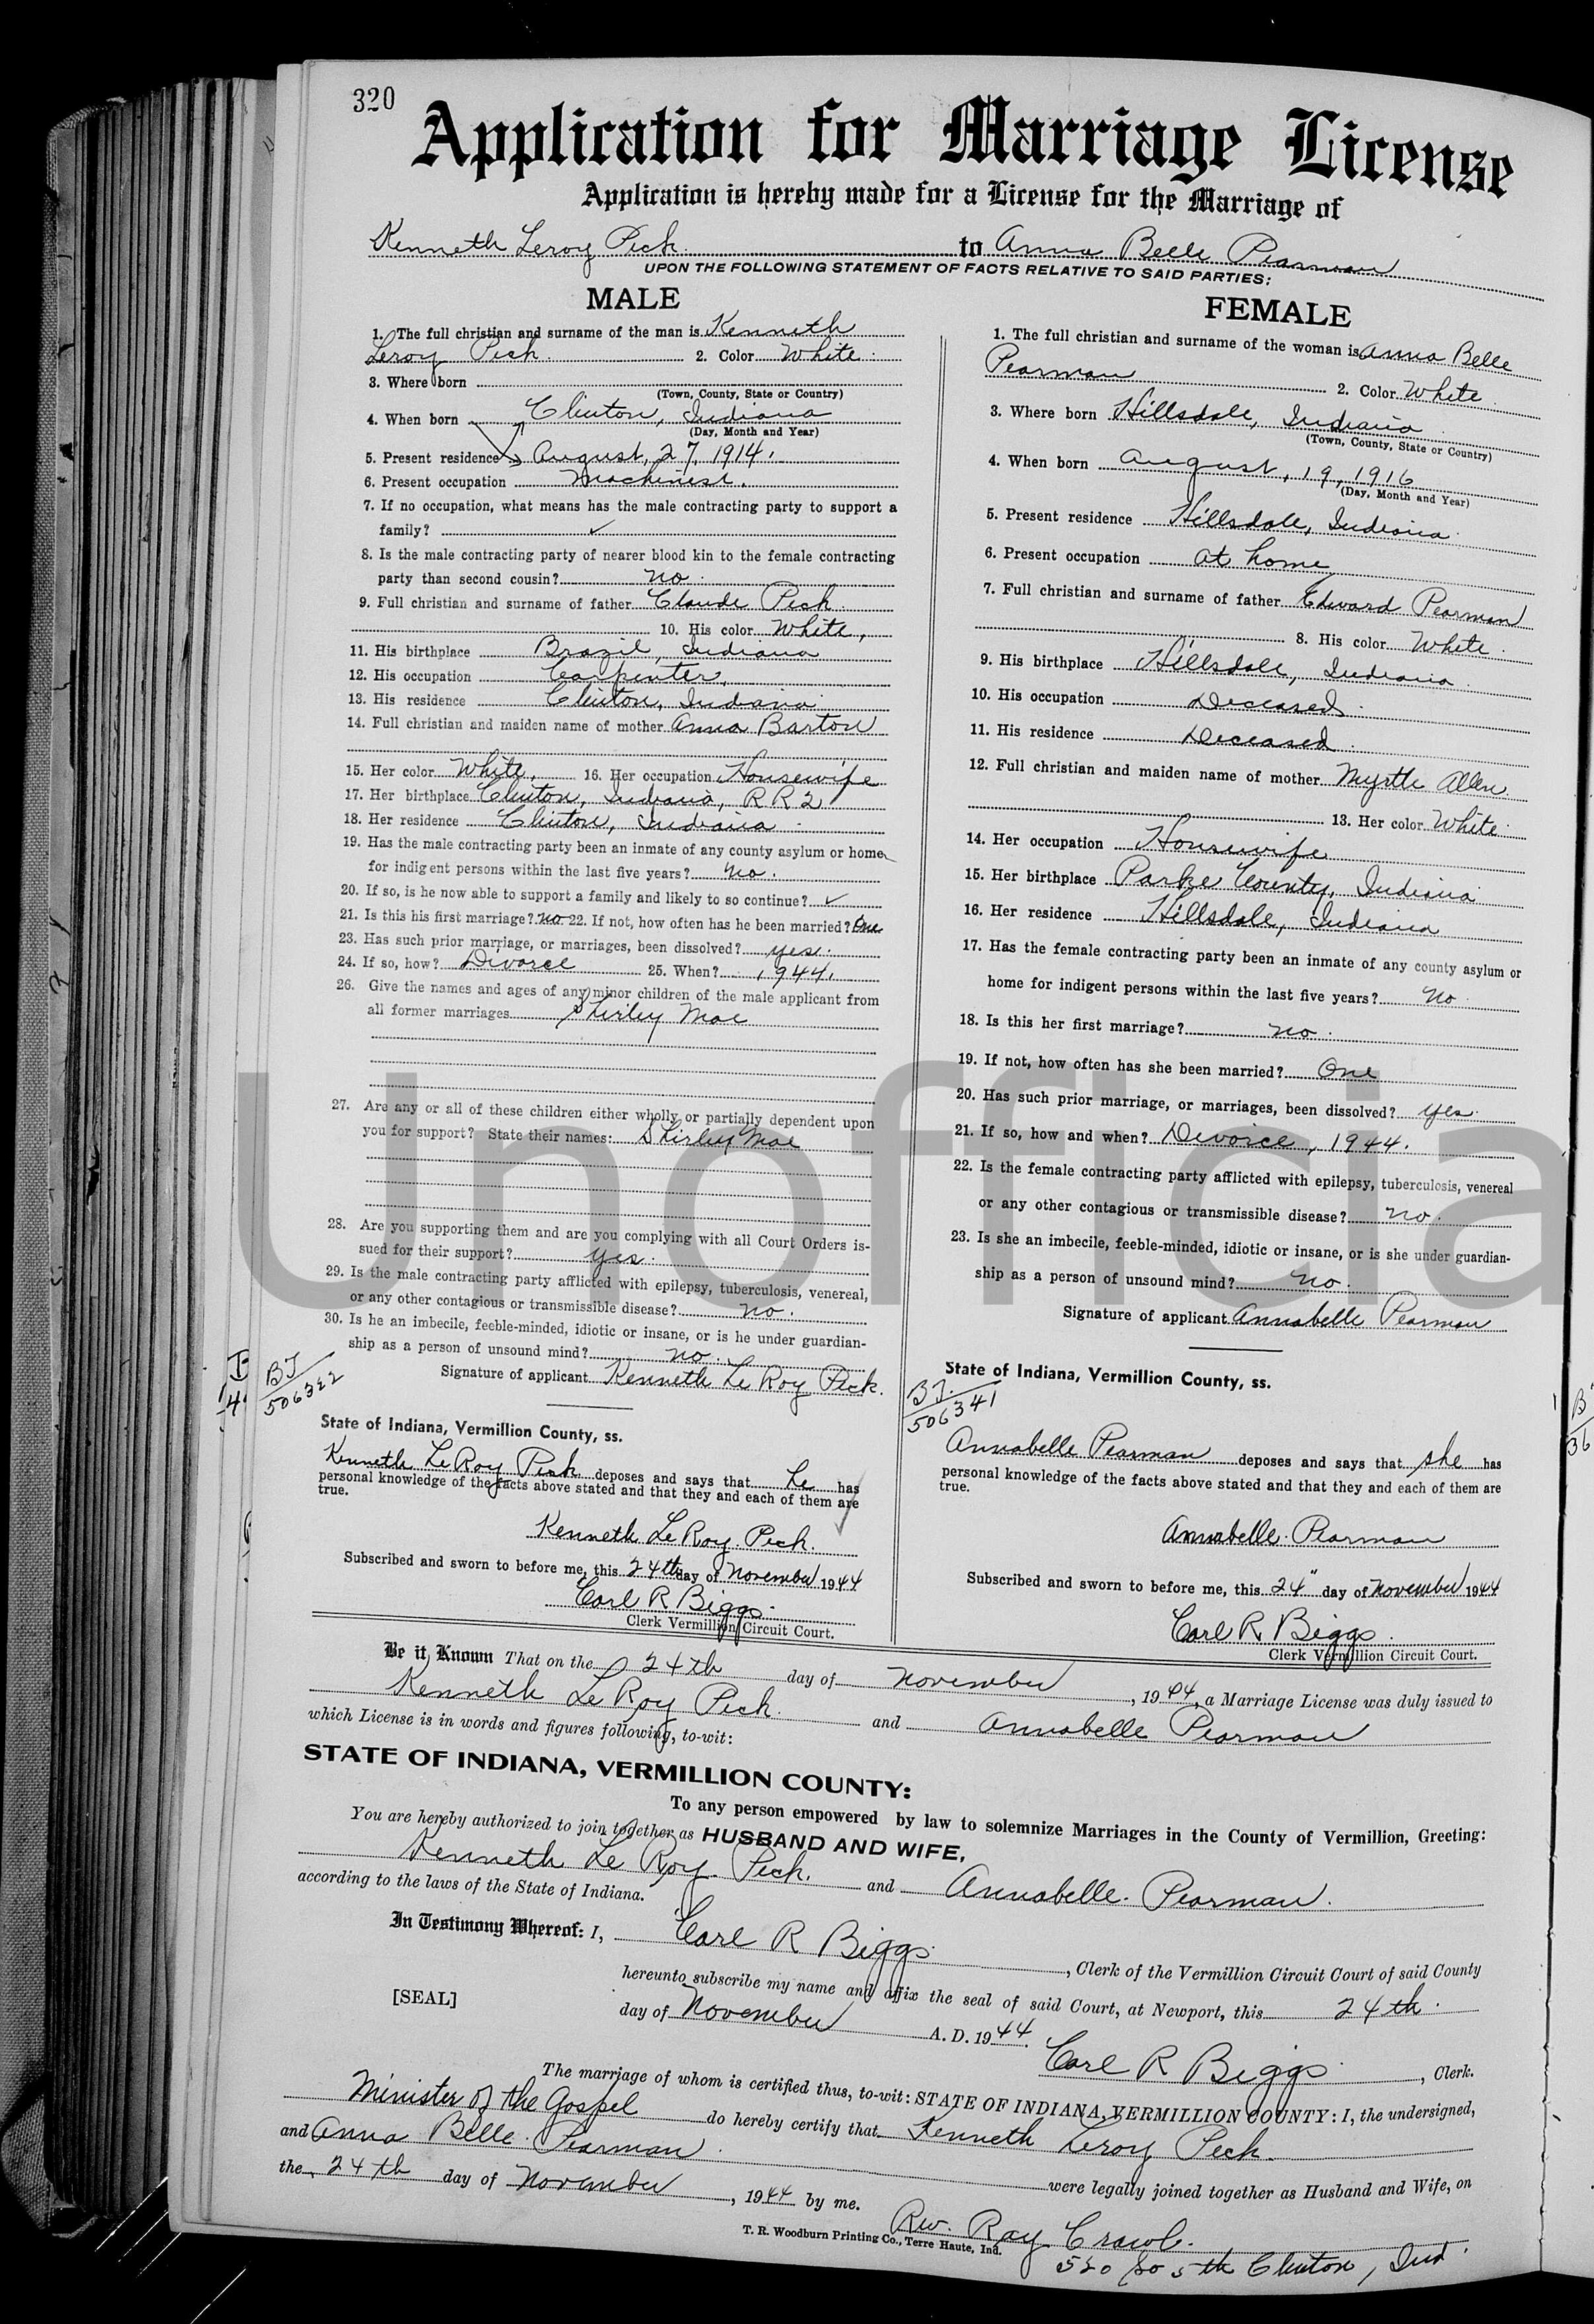 320
Application for Marriage License
Application is hereby made for a License for the Marriage of
Kenneth Leroy Peck to Anna Belle Pearman
UPON THE FOLLOWING STATEMENT OF FACTS RELATIVE TO SAID PARTIES:
MALE
1. The full christian and surname of the man is Kenneth
Leroy Peck 2. Color White
3. Where born
(Town, County, State or Country)
4. When born Clinton, Indiana
(Day, Month and Year)
5. Present residence August, 27, 1914.
6. Present occupation Machinist.
7. If no occupation, what means has the male contracting party to support a
family? ✓
8. Is the male contracting party of nearer blood kin to the female contracting
party than second cousin? no.
9. Full christian and surname of father Claude Peck
10. His color White,
11. His birthplace Brazil, Indiana
12. His occupation Carpenter,
13. His residence Clinton, Indiana
14. Full christian and maiden name of mother Anna Barton
15. Her color White, 16. Her occupation Housewife
17. Her birthplace Clinton, Indiana, RR2
18. Her residence Clinton, Indiana
19. Has the male contracting party been an inmate of any county asylum or home
for indigent persons within the last five years? no.
20. If so, is he now able to support a family and likely to so continue? ✓
21. Is this his first marriage? no 22. If not, how often has he been married? One
23. Has such prior marriage, or marriages, been dissolved? yes.
24. If so, how? Divorce 25. When? 1944,
26. Give the names and ages of any minor children of the male applicant from
all former marriages Shirley Mae
27. Are any or all of these children either wholly or partially dependent upon
you for support? State their names: Shirley Mae
28. Are you supporting them and are you complying with all Court Orders is-
sued for their support? yes.
29. Is the male contracting party afflicted with epilepsy, tuberculosis, venereal,
or any other contagious or transmissible disease? no.
30. Is he an imbecile, feeble-minded, idiotic or insane, or is he under guardian-
ship as a person of unsound mind? no.
Signature of applicant Kenneth Le Roy Peck.
BT
506322
State of Indiana, Vermillion County, ss.
Kenneth LeRoy Peck deposes and says that he has
personal knowledge of the facts above stated and that they and each of them are
true.
Kenneth Le Roy Peck.
Subscribed and sworn to before me, this 24th day of November 1944
Carl R Biggs
Clerk Vermillion Circuit Court.
FEMALE
1. The full christian and surname of the woman is Anna Belle
Pearman 2. Color White
3. Where born Hillsdale, Indiana
(Town, County, State or Country)
4. When born August, 19, 1916
(Day, Month and Year)
5. Present residence Hillsdale, Indiana
6. Present occupation at home
7. Full christian and surname of father Edward Pearman
8. His color White
9. His birthplace Hillsdale, Indiana
10. His occupation Deceased
11. His residence Deceased
12. Full christian and maiden name of mother Myrtle Allen
13. Her color White
14. Her occupation Housewife
15. Her birthplace Parke County, Indiana
16. Her residence Hillsdale, Indiana
17. Has the female contracting party been an inmate of any county asylum or
home for indigent persons within the last five years? no
18. Is this her first marriage? no.
19. If not, how often has she been married? One
20. Has such prior marriage, or marriages, been dissolved? yes.
21. If so, how and when? Divorce, 1944.
22. Is the female contracting party afflicted with epilepsy, tuberculosis, venereal
or any other contagious or transmissible disease? no.
23. Is she an imbecile, feeble-minded, idiotic or insane, or is she under guardian-
ship as a person of unsound mind? no.
Signature of applicant Annabelle Pearman
State of Indiana, Vermillion County, ss.
BT.
506341
Annabelle Pearman deposes and says that she has
personal knowledge of the facts above stated and that they and each of them are
true.
Annabelle Pearman
Subscribed and sworn to before me, this 24" day of November 1944
Carl R Biggs
Clerk Vermillion Circuit Court.
Be it Known That on the 24th day of November, 1944, a Marriage License was duly issued to
Kenneth Le Roy Peck and Annabelle Pearman
which License is in words and figures following, to-wit:
STATE OF INDIANA, VERMILLION COUNTY:
To any person empowered by law to solemnize Marriages in the County of Vermillion, Greeting:
You are hereby authorized to join together as HUSBAND AND WIFE,
Kenneth Le Roy Peck. and Annabelle Pearman.
according to the laws of the State of Indiana.
In Testimony Whereof: I, Carl R Biggs, Clerk of the Vermillion Circuit Court of said County
hereunto subscribe my name and affix the seal of said Court, at Newport, this 24th.
[SEAL] day of November A. D. 1944.
Carl R Biggs, Clerk.
The marriage of whom is certified thus, to-wit: STATE OF INDIANA, VERMILLION COUNTY: I, the undersigned,
Minister of the Gospel do hereby certify that Kenneth Leroy Peck.
and Anna Belle Pearman were legally joined together as Husband and Wife, on
the 24th day of November, 1944 by me.
Rev. Ray Crawl.
T. R. Woodburn Printing Co., Terre Haute, Ind.
520 So 5th Clinton, Ind.
Unofficia